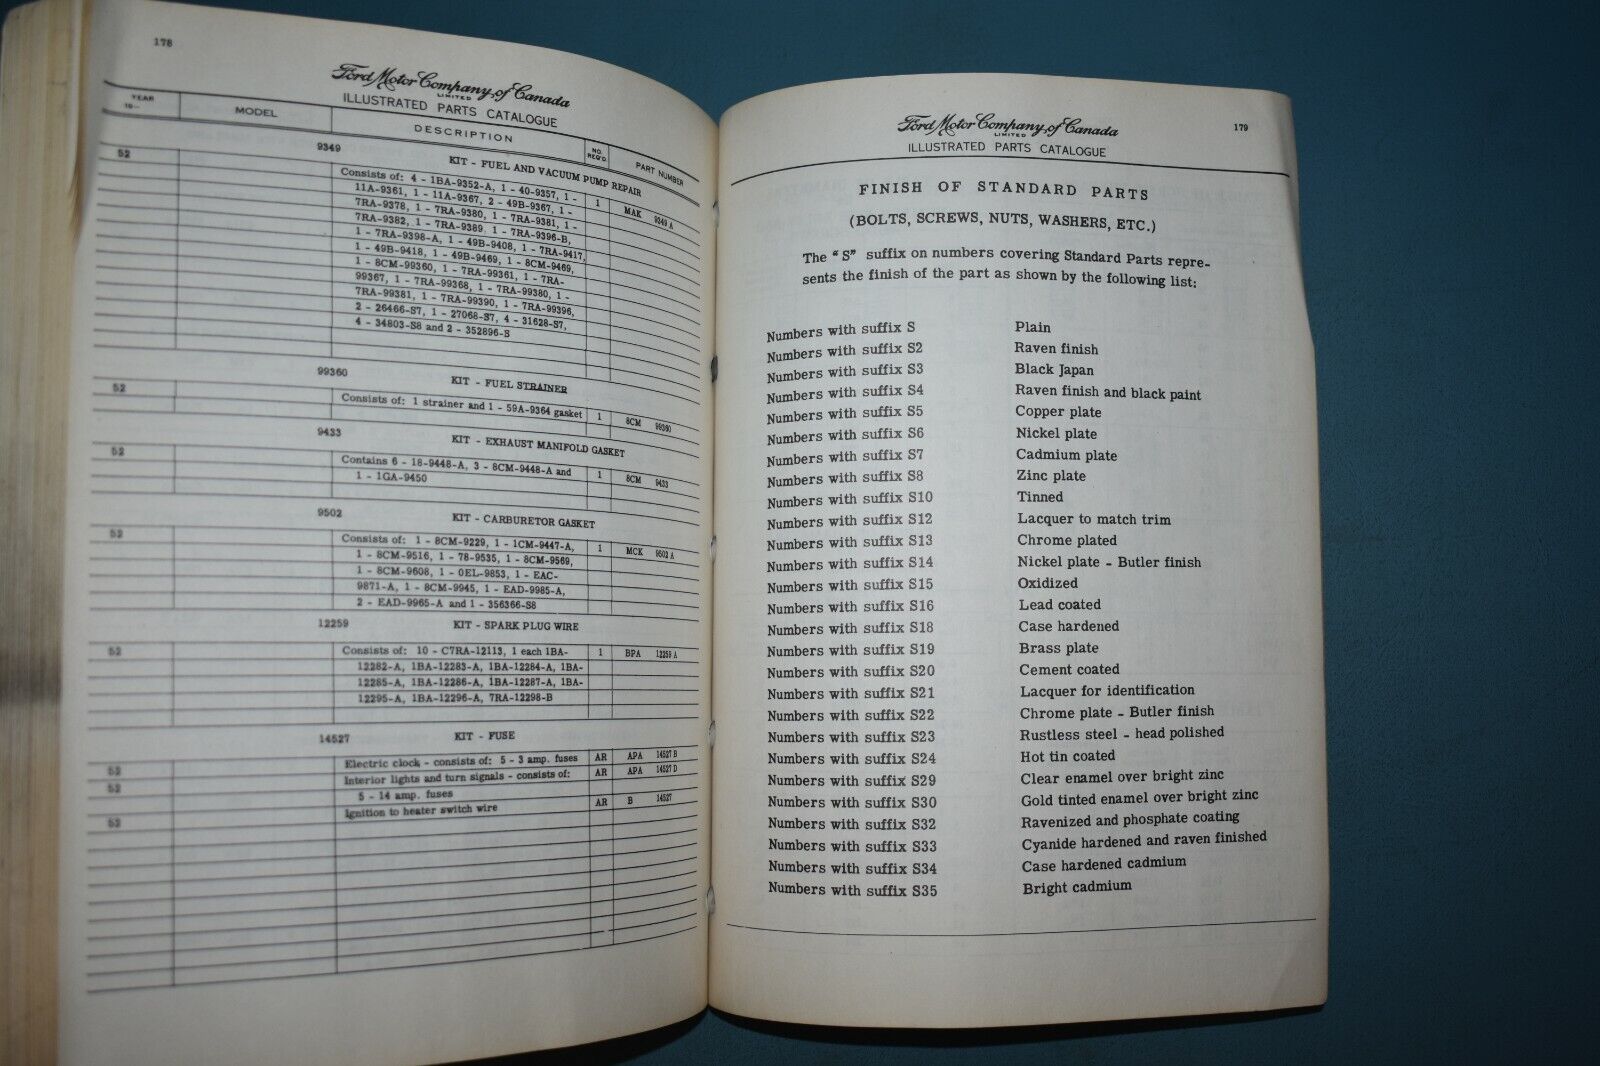 178
Ford Motor Company of Canada
LIMITED
ILLUSTRATED PARTS CATALOGUE
YEAR 19-- MODEL DESCRIPTION NO. REQ'D PART NUMBER
9349 KIT - FUEL AND VACUUM PUMP REPAIR
52 Consists of: 4 - 1BA-9352-A, 1 - 40-9357, 1 - 1 MAK 9349 A
11A-9361, 1 - 11A-9367, 2 - 49B-9367, 1 -
7RA-9378, 1 - 7RA-9380, 1 - 7RA-9381, 1 -
7RA-9382, 1 - 7RA-9389. 1 - 7RA-9396-B,
1 - 7RA-9398-A, 1 - 49B-9408, 1 - 7RA-9417,
1 - 49B-9418, 1 - 49B-9469, 1 - 8CM-9469,
1 - 8CM-99360, 1 - 7RA-99361, 1 - 7RA-
99367, 1 - 7RA-99368, 1 - 7RA-99380, 1 -
7RA-99381, 1 - 7RA-99390, 1 - 7RA-99396,
2 - 26466-S7, 1 - 27068-S7, 4 - 31628-S7,
4 - 34803-S8 and 2 - 352896-S
99360 KIT - FUEL STRAINER
52 Consists of: 1 strainer and 1 - 59A-9364 gasket 1 8CM 99360
9433 KIT - EXHAUST MANIFOLD GASKET
52 Contains 6 - 18-9448-A, 3 - 8CM-9448-A and 1 8CM 9433
1 - 1GA-9450
9502 KIT - CARBURETOR GASKET
52 Consists of: 1 - 8CM-9229, 1 - 1CM-9447-A, 1 MCK 9502 A
1 - 8CM-9516, 1 - 78-9535, 1 - 8CM-9569,
1 - 8CM-9608, 1 - 0EL-9853, 1 - EAC-
9871-A, 1 - 8CM-9945, 1 - EAD-9985-A,
2 - EAD-9965-A and 1 - 356366-S8
12259 KIT - SPARK PLUG WIRE
52 Consists of: 10 - C7RA-12113, 1 each 1BA- 1 BPA 12259 A
12282-A, 1BA-12283-A, 1BA-12284-A, 1BA-
12285-A, 1BA-12286-A, 1BA-12287-A, 1BA-
12295-A, 1BA-12296-A, 7RA-12298-B
14527 KIT - FUSE
52 Electric clock - consists of: 5 - 3 amp. fuses AR APA 14527 B
52 Interior lights and turn signals - consists of: AR APA 14527 D
5 - 14 amp. fuses
52 Ignition to heater switch wire AR B 14527
Ford Motor Company of Canada
LIMITED
179
ILLUSTRATED PARTS CATALOGUE
FINISH OF STANDARD PARTS
(BOLTS, SCREWS, NUTS, WASHERS, ETC.)
The "S" suffix on numbers covering Standard Parts repre-
sents the finish of the part as shown by the following list:
Numbers with suffix S Plain
Numbers with suffix S2 Raven finish
Numbers with suffix S3 Black Japan
Numbers with suffix S4 Raven finish and black paint
Numbers with suffix S5 Copper plate
Numbers with suffix S6 Nickel plate
Numbers with suffix S7 Cadmium plate
Numbers with suffix S8 Zinc plate
Numbers with suffix S10 Tinned
Numbers with suffix S12 Lacquer to match trim
Numbers with suffix S13 Chrome plated
Numbers with suffix S14 Nickel plate - Butler finish
Numbers with suffix S15 Oxidized
Numbers with suffix S16 Lead coated
Numbers with suffix S18 Case hardened
Numbers with suffix S19 Brass plate
Numbers with suffix S20 Cement coated
Numbers with suffix S21 Lacquer for identification
Numbers with suffix S22 Chrome plate - Butler finish
Numbers with suffix S23 Rustless steel - head polished
Numbers with suffix S24 Hot tin coated
Numbers with suffix S29 Clear enamel over bright zinc
Numbers with suffix S30 Gold tinted enamel over bright zinc
Numbers with suffix S32 Ravenized and phosphate coating
Numbers with suffix S33 Cyanide hardened and raven finished
Numbers with suffix S34 Case hardened cadmium
Numbers with suffix S35 Bright cadmium